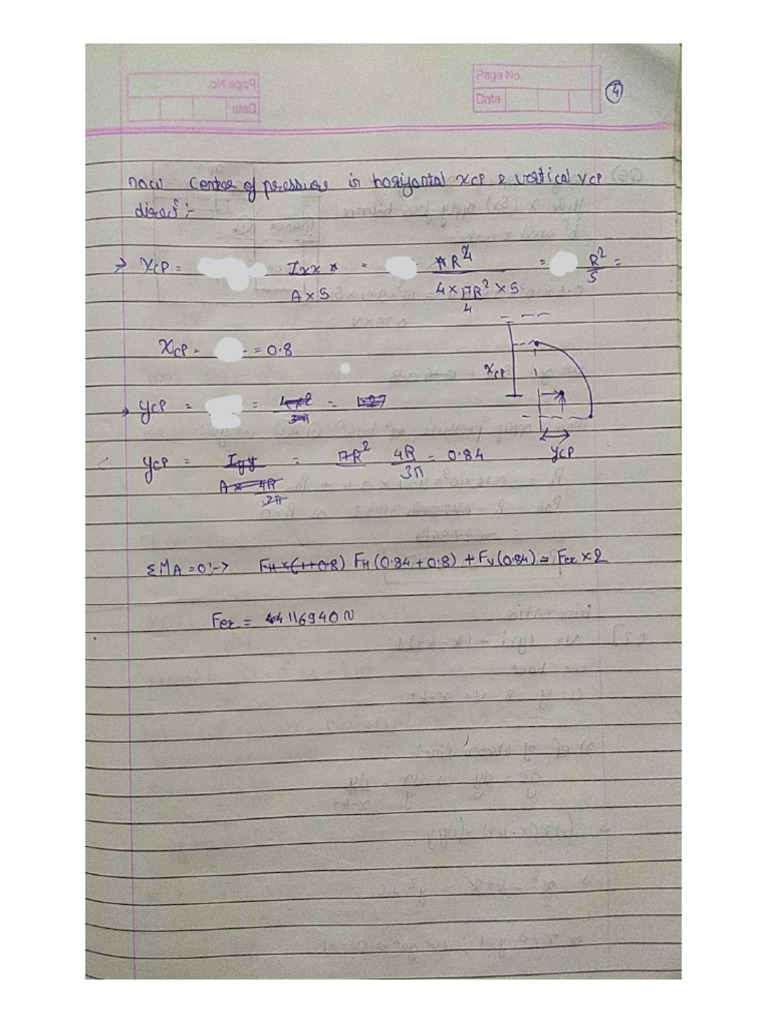 Page No.
Date
4
now Center of pressure in horizontal xcp & vertical ycp
direct :-
→ XCP = Ixx = πR⁴ = R² =
A×5 4×πR²×5 5
4
XCP = = 0.8
→ YCP = = 4×2 = 1.27
3π
YCP = Iyy = πR² 4R = 0.84
A× 4R 3π
3π
XCP
YCP
ΣMA=0:→ FH×(1+0.8) FH(0.84+0.8) + FV(0.84) = Fer×2
Fer = 44116940N